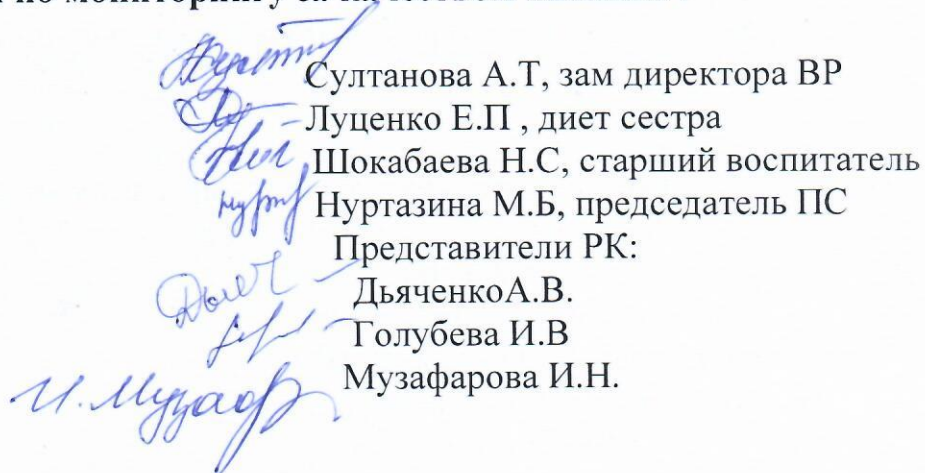 по мониторингу за качеством
Султанова А.Т, зам директора ВР
Луценко Е.П , диет сестра
Шокабаева Н.С, старший воспитатель
Нуртазина М.Б, председатель ПС
Представители РК:
ДьяченкоА.В.
Голубева И.В
Музафарова И.Н.